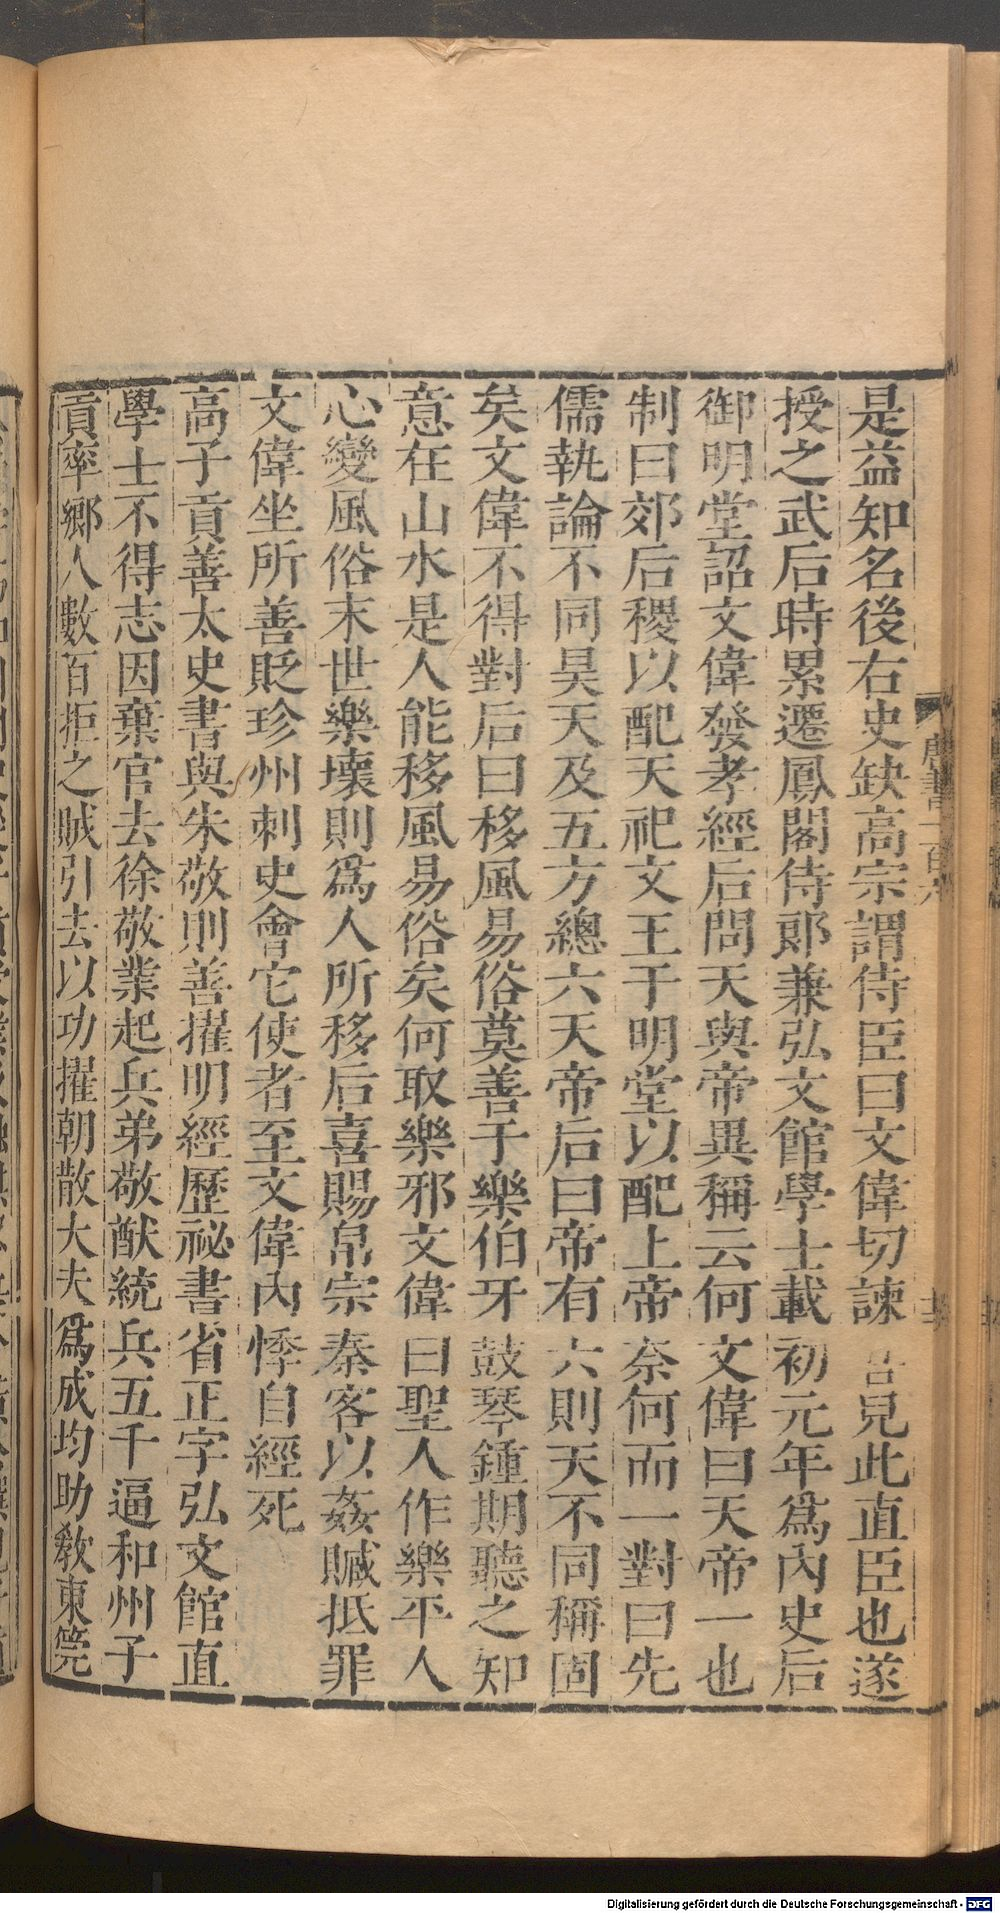 是益知名後右史缺高宗謂侍臣曰文偉切諫 吾見此直臣也遂
授之武后時累遷鳳閣侍郎兼弘文館學士載初元年爲內史后
御明堂詔文偉發孝經后問天與帝異稱云何文偉曰天帝一也
制曰郊后稷以配天祀文王于明堂以配上帝奈何而一對曰先
儒執論不同昊天及五方總六天帝后曰帝有六則天不同稱固
矣文偉不得對后曰移風易俗莫善于樂伯牙鼓琴鍾期聽之知
意在山水是人能移風易俗矣何取樂邪文偉曰聖人作樂平人
心變風俗末世樂壞則爲人所移后喜賜帛宗秦客以姦贓抵罪
文偉坐所善貶珍州刺史會它使者至文偉內悸自經死
高子貢善太史書與朱敬則善擢明經歷祕書省正字弘文館直
學士不得志因棄官去徐敬業起兵弟敬猷統兵五千逼和州子
貢率鄉人數百拒之賊引去以功擢朝散大夫爲成均助教東筦
唐書一百六
Digitalisierung gefördert durch die Deutsche Forschungsgemeinschaft - DFG